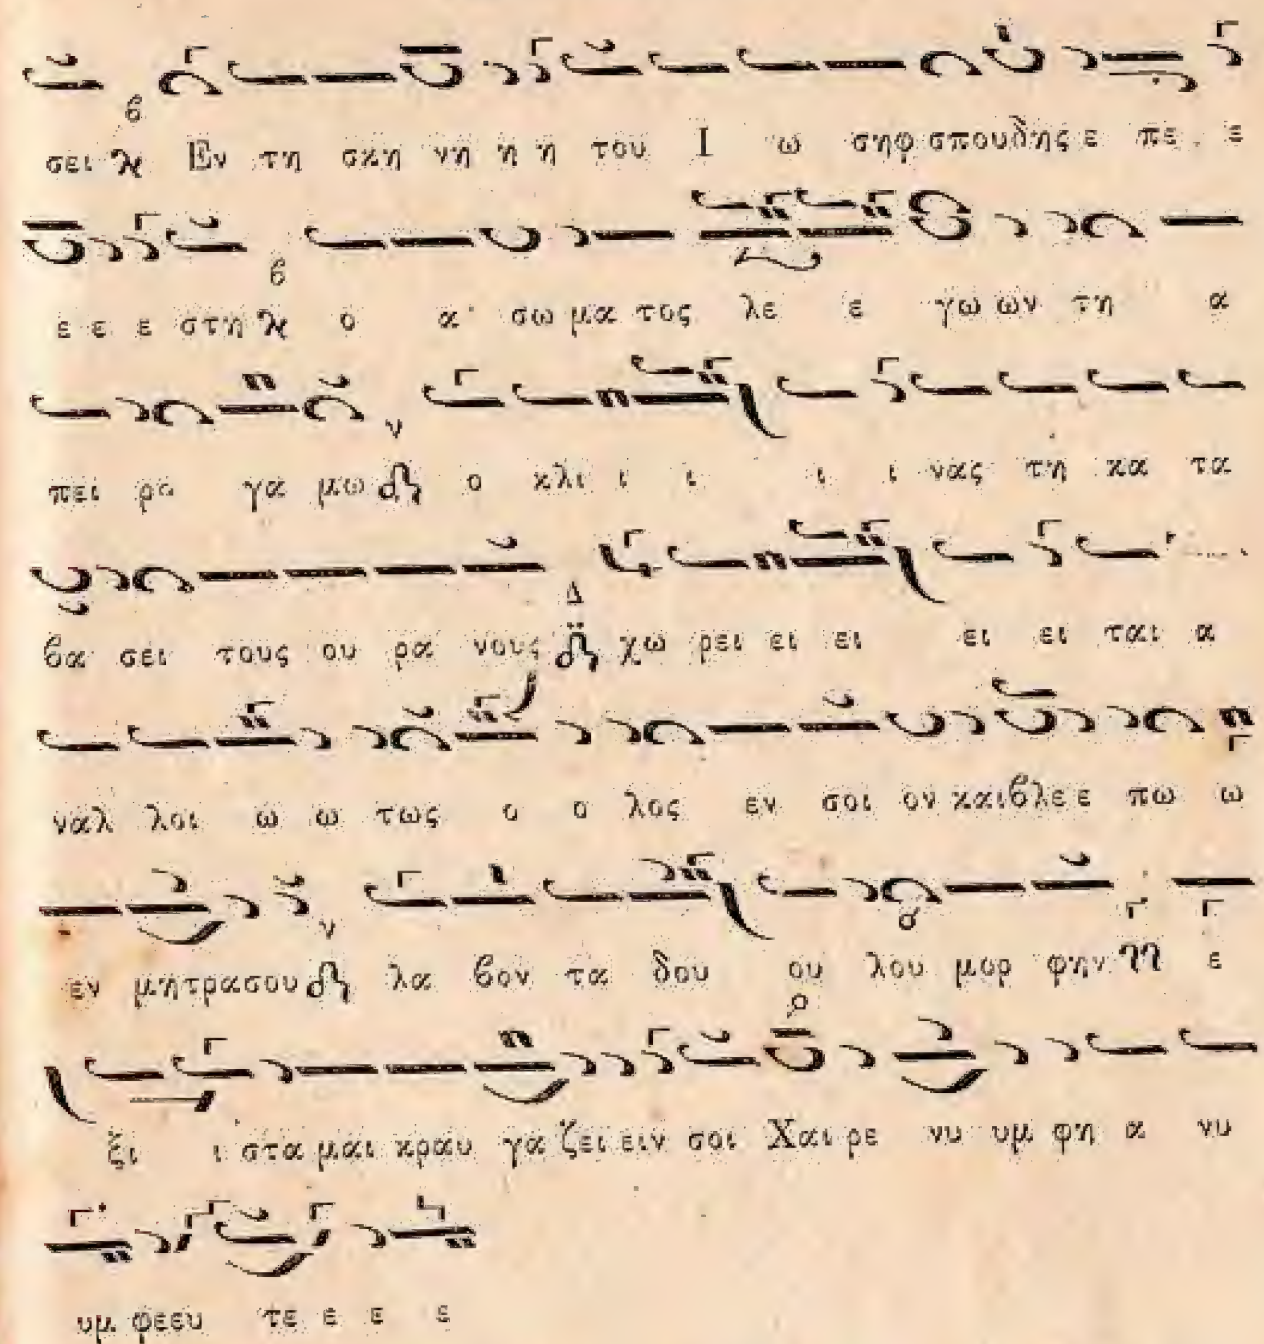 σει Εν τη σκη νη η η του Ι ω σηφ σπουδης ε πε ε
ε ε ε στη ο α σω μα τος λε ε γω ων τη α
πει ρο γα μω ο κλι ι ι ι ι νας τη κα τα
βα σει τους ου ρα νους χω ρει ει ει ει ει ται α
ναλ λοι ω ω τως ο ο λος εν σοι ον και βλε ε πω ω
εν μητρα σου λα βον τα δου ου λου μορ φην ε
ξι ι στα μαι κραυ γα ζει ειν σοι Χαι ρε νυ υμ φη α νυ
υμ φεευ τε ε ε ε